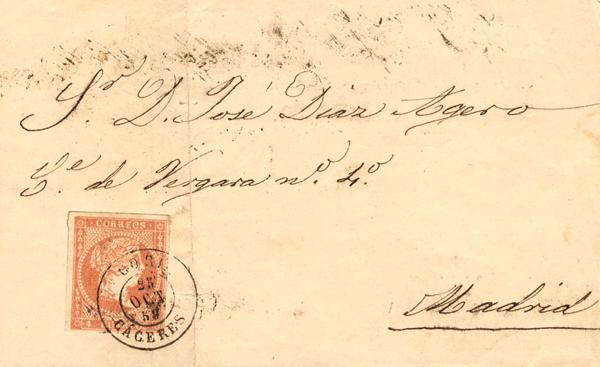 Sr. D. José Diaz Agero
Ce. de Vergara no. 4o.
Madrid
CORREOS
CORIA
OCT
CÁCERES